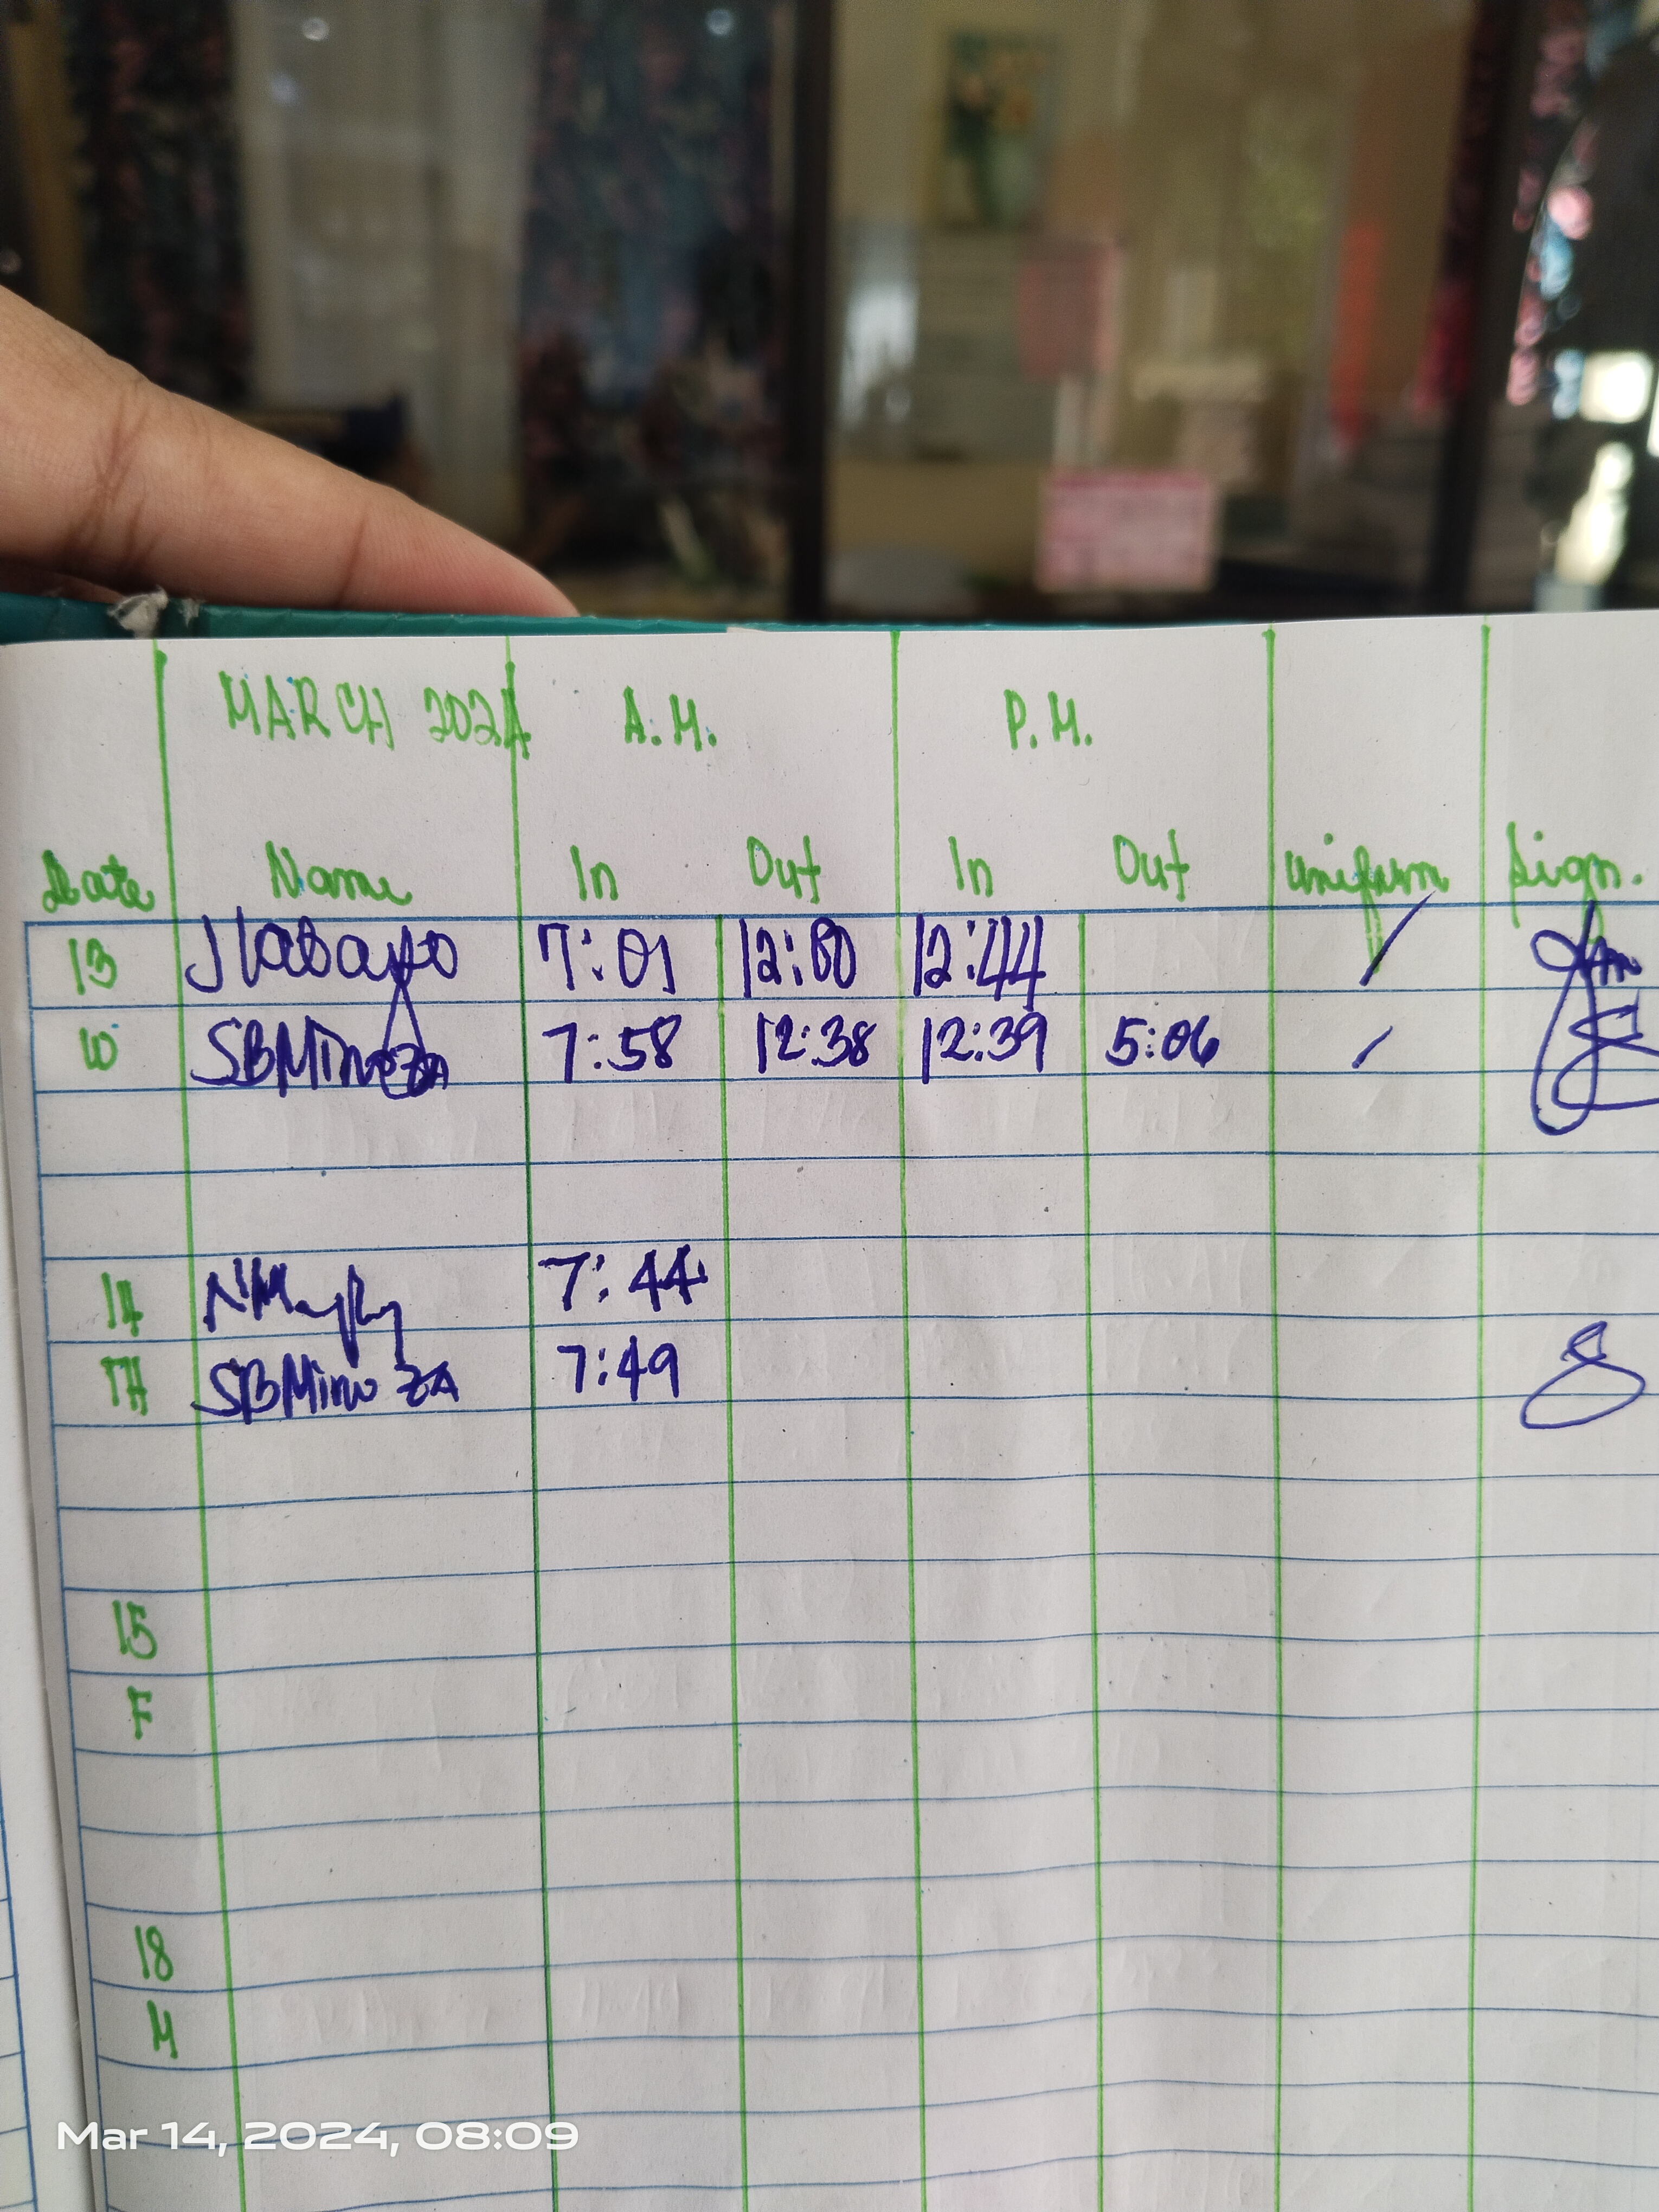 MARCH 2024 A.M. P.M.
Date Name In Out In Out uniform sign.
13 7:01 12:44
W SBMinoZA 7:58 12:38 12:39 5:06
14 7:44
TH SBMinoZA 7:49
15
F
18
M
Mar 14, 2024, 08:09